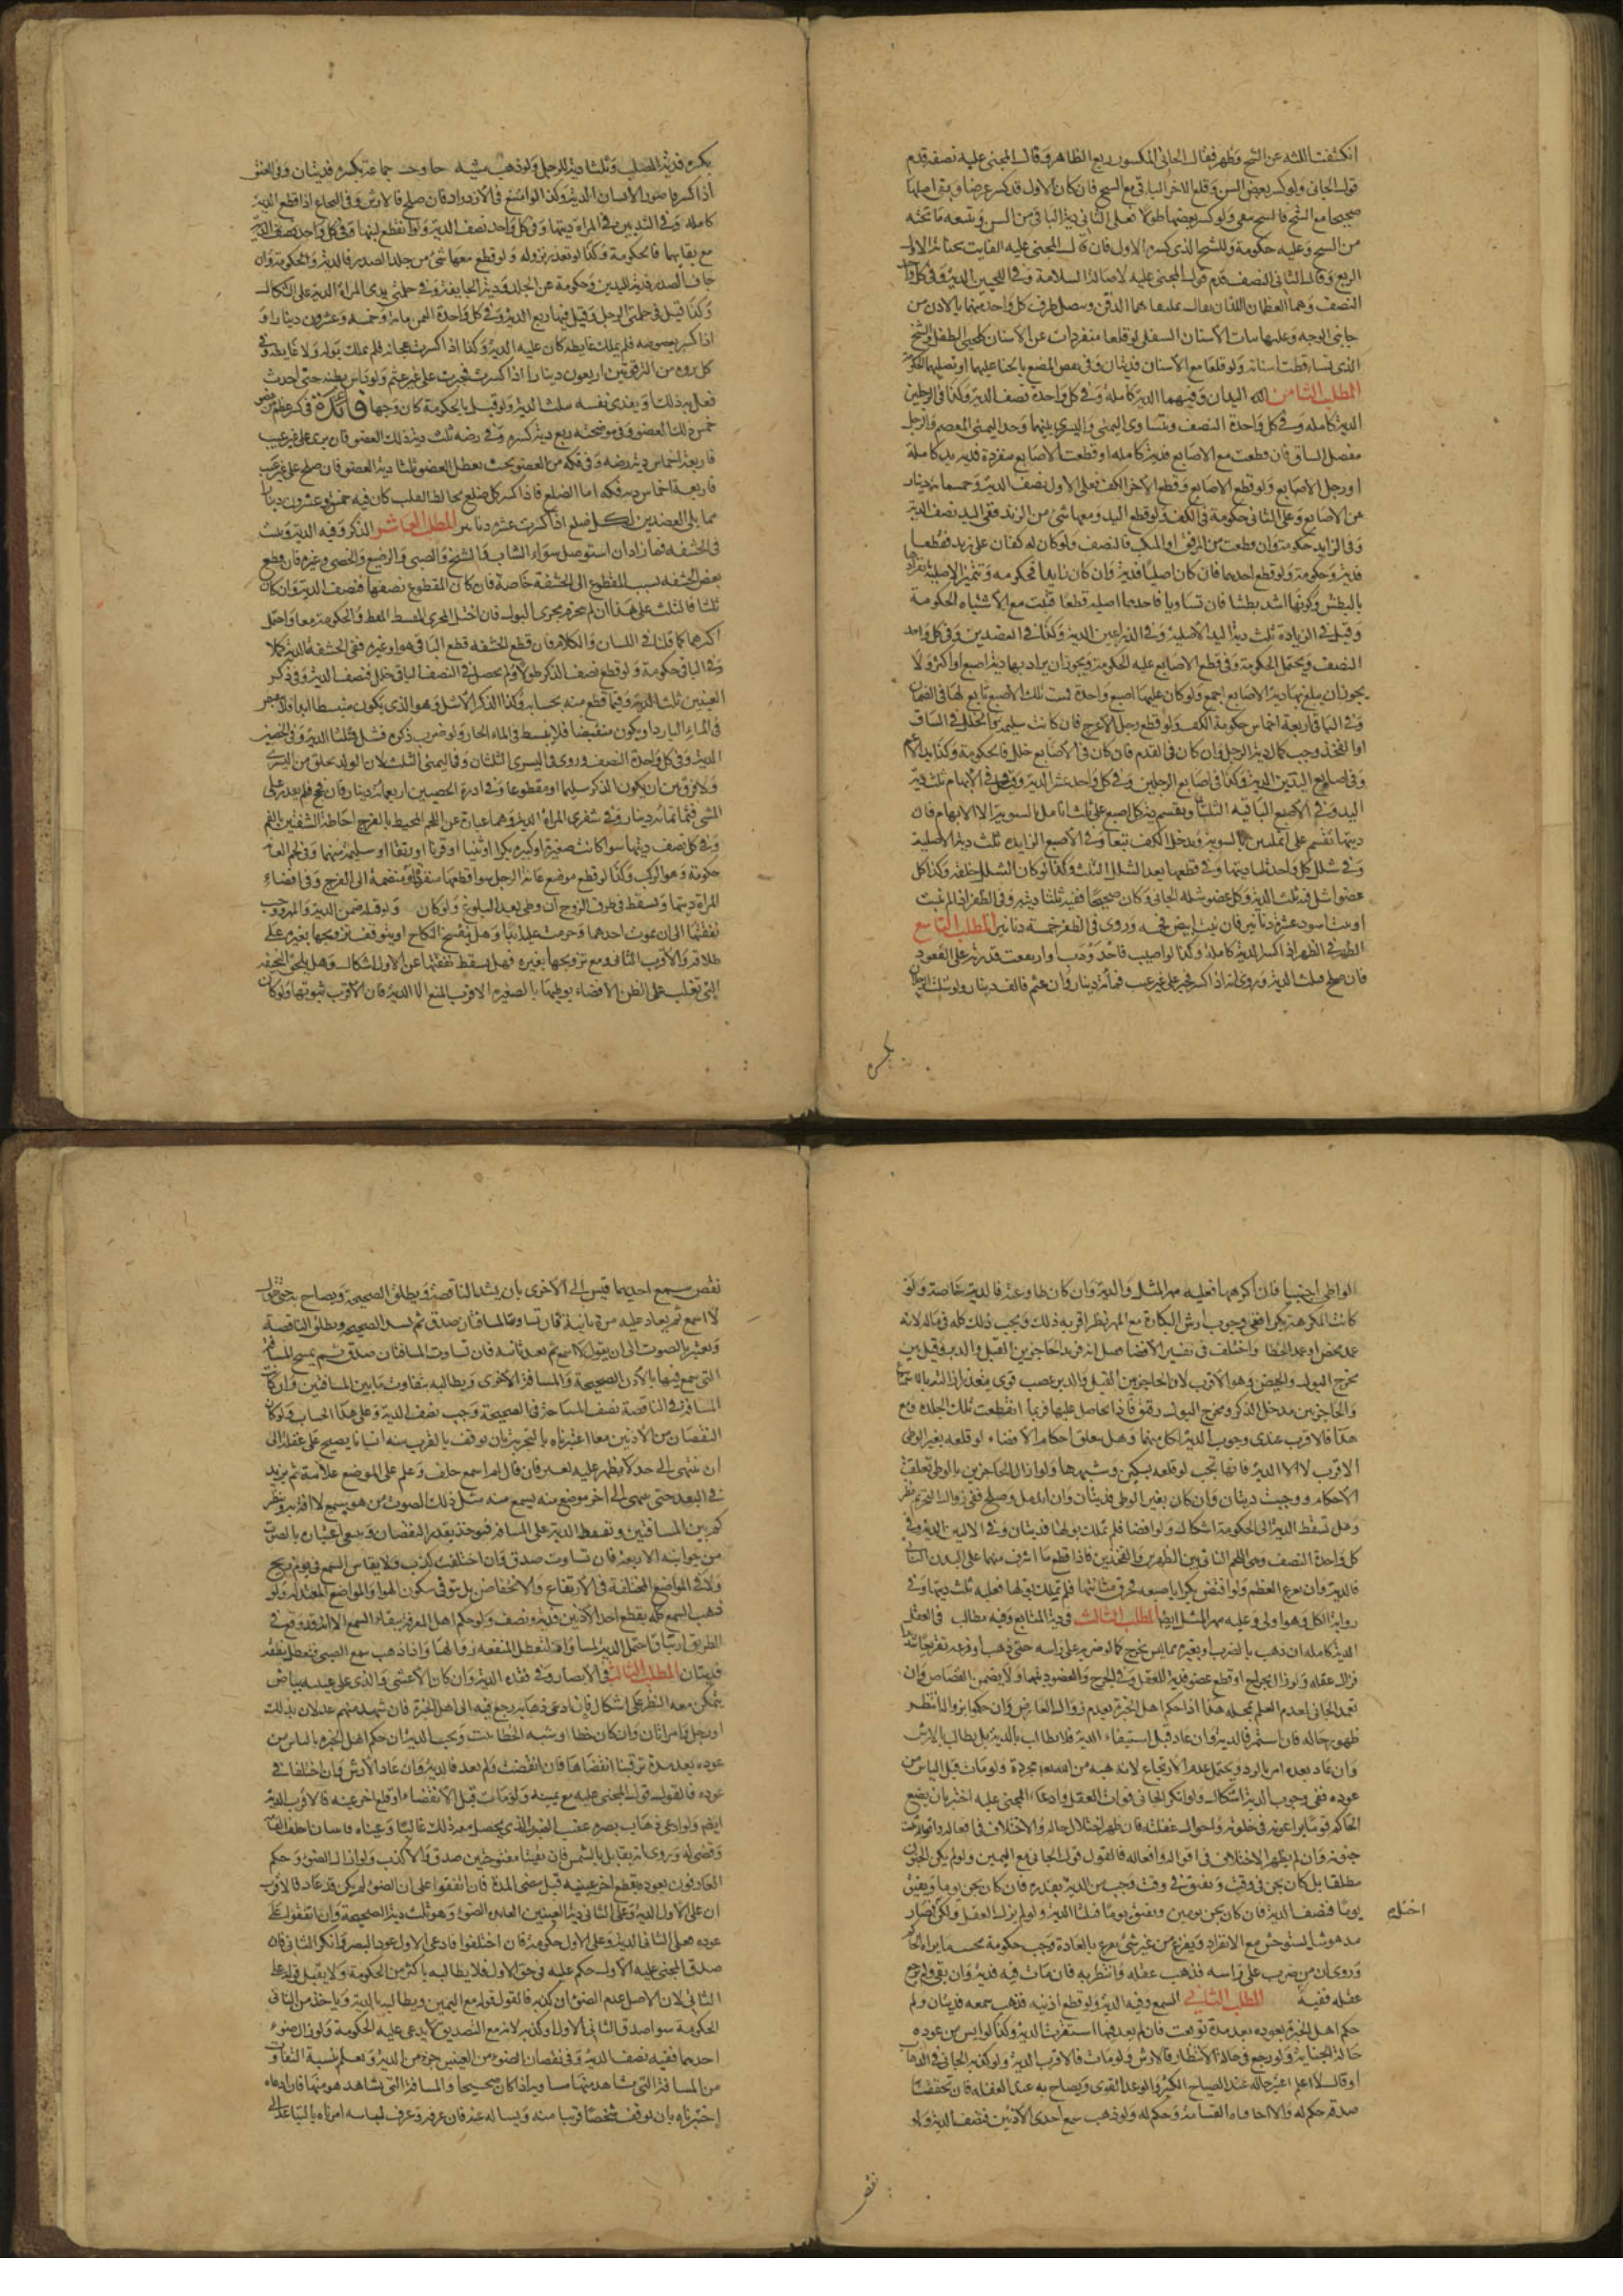 انكشفت اللثه عن السنخ وظهر فقال الجاني المكسور ربع الظاهر وقال المجنى عليه نصفه قدم
قول الجاني ولو كسر بعض السن وقلع الاخر الباقي مع السنخ فان كان الاول قد كسر عرضا وبقى اصلها
صحيحا مع السنخ فالسنخ ولو كسر بعضها طولا فعلى الثاني دية الباقي من السن ويتبعه ما تحته
من السنخ وعليه حكومة وللسنخ الذي كسره الاول فان قال المجنى عليه الفايت بجناية الاول
الربع وقال الثاني النصف قدم قول المجنى عليه لاصالة السلامة وفي اللحيين الدية وفي كل واحد
النصف وهما العظمان اللذان يقال ملتقاهما الذقن ويتصل طرف كل واحد منهما بالاذن من
جانبي الوجه وعليهما نبات الاسنان السفلى لو قلعا منفردات عن الاسنان كلحيي الطفل والشيخ
الذى تساقطت اسنانه ولو قلعا مع الاسنان فديتان وفي نقص المضغ بالجناية عليهما او تصلبهما الحكومة
المطلب الثامن اليدان وفيهما الدية كامله وفي كل واحدة نصف الدية وكذا في الرجلين
الدية كامله وفي كل واحدة النصف وتتساوى اليمنى واليسرى منهما وحد اليمنى المعصم والرجل
مفصل الساق فان قطعت مع الاصابع فدية كامله ولو قطعت الاصابع منفردة فدية يد كاملة
او رجل الاصابع ولو قطع الاصابع وقطع الاخر الكف فعلى الاول نصف الدية وخمسمائة دينار
عن الاصابع وعلى الثاني حكومة في الكف ولو قطع اليد ومعها شئ من الزند ففي اليد نصف الدية
وفي الزايد حكومة وان قطعت من المرفق او المنكب فالنصف ولو كان له كفان على زند فقطعهما
فدية وحكومة ولو قطع احدهما فان كان اصليا فدية وان كان زايدا فحكومه وتتميز الاصلية بانفرادها
بالبطش وكونها اشد بطشا فان تساويا فاحدهما اصليه قطعا قلت مع الاشتباه الحكومة
وقيل في الزيادة ثلث دية اليد الاصليه وفي الذراعين الدية وكذا في العضدين وفي كل واحد
النصف ويحتمل الحكومة وفي قطع الاصابع عليه الحكومة ويجوز ان يراد بها دية اصبع او اكثر ولا
يجوز ان يبلغ بها دية الاصابع اجمع ولو كان عليها اصبع واحدة تبعت تلك الاصبع تابع لها في الضمان
وفي الباقي اربعة اخماس حكومة الكف ولو قطع رجل الاعرج فان كانت سليمة والخلل في الساق
او الفخذ وجب كمال دية الرجل وان كان في القدم فان كان في الاصابع خلل فالحكومة وكذا يد الاعسم
وفي اصابع اليدين الدية وكذا في اصابع الرجلين وفي كل واحد عشر الدية وقيل في الابهام ثلث دية
اليد وفي الاصبع الباقية الثلثان ويقسم دية كل اصبع على ثلث انامل بالسوية الا الابهام فان
ديتها تقسم على انملتين بالسوية ويدخل الكف تبعا وفي الاصبع الزايده ثلث دية الاصلية
وفي شلل كل واحد ثلثا ديتها وفي قطعها بعد الشلل الثلث وكذا لو كان الشلل خلقة وكذا كل
عضو اشل فيه ثلث الدية وكل عضو شله الجاني وكان صحيحا ففيه ثلثا ديته وفي الظفر ان لم ينبت
او نبت اسود عشرة دنانير فان نبت ابيض فخمسه وروي في الظفر خمسة دنانير المطلب التاسع
الظهر في الظهر اذا كسر الدية كاملة وكذا لو اصيب فاحدودب او ارتفعت قدرته على القعود
فان صلح فثلث الدية وروي انه اذا كسر فجبر على غير عيب فمائة دينار وان عثم فالف دينار ولو شلت الرجلان
بكسره فدية للصلب وثلثا دية للرجل ولو ذهب مشيه وجماعه بكسره فديتان وفي العنق
اذا كسر فاصور الانسان الدية وكذا لو امتنع في الازدراد فان صلح فالارش وفي النخاع اذا قطع الدية
كامله وفي الثديين في المراة ديتها وفي كل واحد نصف الدية ولو انقطع لبنها وفي كل واحد نصف الدية
مع بقايهما فالحكومة وكذا لو تعذر نزوله ولو قطع معها شئ من جلد الصدر فالدية والحكومة وان
جاف الصدر فدية للثديين وحكومة عن الجلد ودية الجايفة وفي حلمتي ثدى المراة الدية على اشكال
وكذا قيل في حلمتي الرجل وقيل فيهما ربع الدية وفي كل واحدة الثمن مائة وخمسه وعشرون دينارا و
اذا كسر بعصوصه فلم يملك غايطه كان عليه الدية وكذا اذا كسرت عجانه فلم يملك بوله ولا غايطه وفي
كل من الترقوتين اربعون دينارا اذا كسرت فجبرت على غير عثم ولو داس بطنه حتى احدث
فعل به ذلك او يفتدي نفسه بثلث الدية ولو قيل بالحكومة كان وجها فائدة في كسر عظم من عضو
خمس ذلك العضو وفي موضحته ربع دية كسره وفي رضه ثلث دية ذلك العضو فان برى على غير عيب
فاربعة اخماس دية رضه وفي فكه من العضو بحيث يتعطل العضو ثلثا دية العضو فان صلح على غير عيب
فاربعة اخماس دية فكه اما الضلع فاذا كسر كل ضلع يخالط القلب كان فيه خمسة وعشرون دينارا
مما يلي العضدين لكل ضلع اذا كسرت عشرة دنانير المطلب العاشر الذكر وفيه الدية وثبت
في الحشفه فما زاد ان استوصل سواء الشاب والشيخ والصبى والرضيع والخصى وغيره فان قطع
بعض الحشفه نسبت المقطوع الى الحشفة خاصة فان كان المقطوع نصفها فنصف الدية وان كان
ثلثا فالثلث على هذا ان لم ينخرم مجرى البول فان اختل المجرى القسط والحكومة معا واحتمل
اكثرهما كما قلنا في اللسان والكلام فان قطع الحشفه وقطع الباقي هو او غيره ففي الحشفة الدية كملا
وفي الباقي حكومة ولو قطع نصف الذكر طولا ولم يحصل في النصف الباقي خلل فنصف الدية وفي ذكر
العنين ثلث الدية وفيما قطع منه بحسابه وكذا الذكر الاشل وهو الذي يكون منبسطا ابدا فلا ينقبض
في الماء البارد او يكون منقبضا فلا ينبسط في الماء الحار ولو ضرب ذكره فشل فثلثا الدية وفي الخصيتين
الدية وفي كل واحدة النصف وروي في اليسرى الثلثان وفي اليمنى الثلث لان الولد يخلق من اليسرى
ولا فرق بين ان يكون الذكر سليما او مقطوعا وفي ادرة الخصيتين اربعمائة دينار فان فحج فلم يقدر على
المشي فثمانمائة دينار وفي شفري المراة الدية وهما عبارة عن اللحم المحيط بالفرج احاطة الشفتين بالفم
وفي كل نصف ديتها سواء كانت صغيرة او كبيره بكرا او ثيبا او قرنا او رتقا او سليمة منهما وفي لحم العانه
حكومة وهو الركب وكذا لو قطع موضع عانة الرجل سواء قطعهما منفردا او منضمة الى الفرج وفي افضاء
المراة ديتها وتسقط في طرف الزوج ان وطئ بعد البلوغ ولو كان قبله ضمن الدية والمهر ووجب
نفقتها الى ان يموت احدهما وحرمت عليه ابدا وهل ينفسخ النكاح او يتوقف تزويجها بغيره على
طلاقه والاقرب الثاني ومع تزويجها بغيره فهل يسقط نفقتها عن الاول اشكال وهل يلحق النحيفه
التي تغلب على الظن الافضاء بوطيها بالصغيره الاقرب المنع الا الدية فان الاقرب ثبوتها ولو كان
الواطي اجنبيا فان اكرهها فعليه مهر المثل والدية وان كان طاوعته فالدية خاصة ولو
كانت المكرهة بكرا ففي وجوب ارش البكارة مع المهر نظر اقربه ذلك ويجب ذلك كله في ماله لانه
عمد محض او عمد الخطا واختلف في تفسير الافضاء فقيل انه ضرب الحاجز بين القبل والدبر وقيل بين
مخرج البول والحيض وهو الاقرب لان الحاجز بين القبل والدبر عصب قوي يتعذر ازالته بالاستمتاع
والحاجز بين مدخل الذكر ومخرج البول رقيق فاذا تحامل عليها فربما انقطعت تلك الجلده ومع
هذا فالاقرب عندي وجوب الدية لكل منهما وهل يتعلق احكام الافضاء لو قلعه بغير الوطي
الاقرب لا الا الدية فانها تجب لو قلعه بسكين وشبهها ولو ازال الحاجزين بالوطي تعلقت
الاحكام ووجبت ديتان وان كان بغير الوطى فديتان وان اندمل وصلح ففي زوال التحريم نظر
وهل تسقط الدية الى الحكومة اشكال ولو افضا فلم تملك بولها فديتان وفي الاليين الدية وفي
كل واحدة النصف وهي اللحم الناتي بين الظهر والفخذين فاذا قطع ما اشرف منهما على البدن
فالدية وان لم يقرع العظم ولو افتض بكرا باصبعه فخرق مثانتها فلم تملك بولها فعليه ثلث ديتها وفي
رواية الكل وهو اولى وعليه مهر المثل ايضا المطلب الثالث في دية المنافع وفيه مطالب في العقل
الدية كامله ان ذهب بالضرب او بغيره مما ليس بجرح كما لو ضربه على راسه حتى ذهب او فزعه تفزيعا شديدا
فزال عقله ولو زال بجراح او قطع عضو فدية للعقل وفي الجرح والعضو ديتهما ولا يضمن القصاص وان
تعمد الجاني لعدم العلم بمحله هذا اذا حكم اهل الخبرة بعدم زوال العارض وان حكموا بزواله انتظر
ظهور حاله فان استمر فالدية وان عاد قبل استيفاء الدية فلا يطالب بالدية بل يطالب بالارش
وان عاد بعده امر بالرد ويحتمل عدم الارتجاع لانه هبة من الله تعالى مجردة ولو مات قبل الياس من
عوده ففي وجوب الدية اشكال ولو انكر الجاني فوات العقل وادعاه المجنى عليه اختبر بان يضع
الحاكم قوما يراعونه في خلوته واحوال غفلته فان ظهر اختلال حاله والاختلاف في افعاله واقواله ثبت
جنونه وان لم يظهر الاختلاف في اقواله وافعاله فالقول قول الجاني مع اليمين ولو لم يكن الجنون
مطلقا بل كان يجن في وقت ويفيق في وقت وجب من الدية بقدره فان كان يجن يوما ويفيق
يوما فنصف الدية فان كان يجن يومين ويفيق يوما فثلثا الدية ولو لم يزل العقل ولكن صار
اختل
مدهوشا يستوحش مع الانفراد ويفزع من غير شئ يفزع بالعادة وجب حكومة بحسب ما يراه الحاكم
وروي ان من ضرب على راسه فذهب عقله وانتظر به فان مات فيه فدية وان بقى ولم يرجع
عقله ففيه المطلب الثاني السمع وفيه الدية ولو قطع اذنيه فذهب سمعه فديتان ولو
حكم اهل الخبرة بعوده بعد مدة توقعت فان لم يعد فيها استقرت الدية وكذا لو ايس من عوده
حالة الجناية ولو رجع في حالة الانتظار فالارش ولو مات فالاقرب الدية ولو كذبه الجاني في الذهاب
او قال لا اعلم اعتبر حاله عند الصياح الكثير والرعد القوى ويصاح به عند الغفله فان تحققنا
صدقه حكم له والا احلفناه القسامة وحكم له ولو ذهب سمع احدى الاذنين فنصف الدية ولو
نقص سمع احديهما قيس الى الاخرى بان يشد الناقصة ويطلق الصحيحة ويصاح به حتى يقول
لا اسمع ثم يعاد عليه مرة ثانية فان تساوت المسافتان صدق ثم تسد الصحيحه ويطلق الناقصة
ويعتبر بالصوت الى ان يقول لا اسمع ثم يعيد ثانيه فان تساوت المسافتان صدق ثم يمسح المسافة
التي سمع فيها بالاذن الصحيحة والمسافة الاخرى ويطالبه بتفاوت ما بين المسافتين وان كانت
المسافة في الناقصة نصف المساحة في الصحيحة وجب نصف الدية وعلى هذا الحساب ولو كان
النقصان من الاذنين معا اعتبرناه بالتجربة بان يوقف بالقرب منه انسانا يصيح على غفلة الى
ان ينتهي الى حد لا يظهر عليه تغير فان قال لم اسمع حلف وعلم على الموضع علامة ثم يزيد
في البعد حتى ينتهي الى اخر موضع منه يسمع منه مثل ذلك الصوت من هو يسمع لا افة به وينظر
كم بين المسافتين ويقسط الدية على المسافة فيوخذ بقدر النقصان وينبغي اعتبار الصوت
من جوانبه الاربعة فان تساوت صدق وان اختلفت كذب ولا يقاس السمع في يوم ريح
ولا في المواضع المختلفة في الارتفاع والانخفاض بل يتوقى سكون الهوا والمواضع المعتدله ولو
ذهب السمع كله بقطع احد الاذنين فدية ونصف ولو حكم اهل المعرفة ببقاء السمع الا انه قد وقع في
الطريق ارتتاق احتمل الدية لمساواة تعطل المنفعه زوالها واذا ذهب سمع الصبي فتعطل نطقه
فديتان المطلب الثالث في الابصار وفي فقده الدية وان كان الاعشى والذي على عينيه بياض
يتمكن معه النظر على اشكال فان ادعى ذهابه رجع فيه الى اهل الخبرة فان شهد منهم عدلان بذلك
او رجل وامراتان وان كان خطا او شبه الخطا ثبت ويجب الدية ان حكم اهل الخبرة بالياس من
عوده بعد مدة ترقبنا انقضاها فان انقضت ولم يعد فالدية وان عاد الارش وان اختلفا في
عوده فالقول قول المجنى عليه مع يمينه ولو مات قبل الانقضاء او قلع اخر عينه فالاقرب الدية
ايضا ولو ادعى ذهاب بصره عقيب الضرب الذي يحصل معه ذلك غالبا وعيناه قائمتان احلف القسامة
وقضى له وروي انه يقابل بالشمس فان بقيتا مفتوحتين صدق والا كذب ولو زال الضوء وحكم
العارفون بعوده فقطع اخر عينيه قبل مضى المدة فان اتفقوا على ان الضوء لم يكن قد عاد فالاقرب
ان على الاول الدية وعلى الثاني دية العينين الفاقدي الضوء وهو ثلث دية الصحيحة وان اتفقوا على
عوده فعلى الثاني الدية وعلى الاول حكومة فان اختلفوا فادعى الاول عود البصر وانكر الثاني فان
صدق المجنى عليه الاول حكم عليه في حق الاول فلا يطالبه باكثر من الحكومة ولا يقبل قوله على
الثاني لان الاصل عدم الضوء وان كذبه فالقول قوله مع اليمين ويطالبه بالدية وياخذ من الثاني
الحكومة سواء صدق الثاني الاول او كذبه لانه مع التصديق لا يدعى عليه الحكومة ولو زال ضوء
احديهما ففيه نصف الدية وفي نقصان الضوء من العينين جزء من الدية ويعلم بنسبة التفاوت
من المسافة التي يشاهد منها مساويه اذا كان صحيحا والمسافة التي يشاهد هو منها فان ادعاه
اختبرناه بان نوقف شخصا قريبا منه ويساله عنه فان عرفه وعرف لباسه امرناه بالتباعد الى